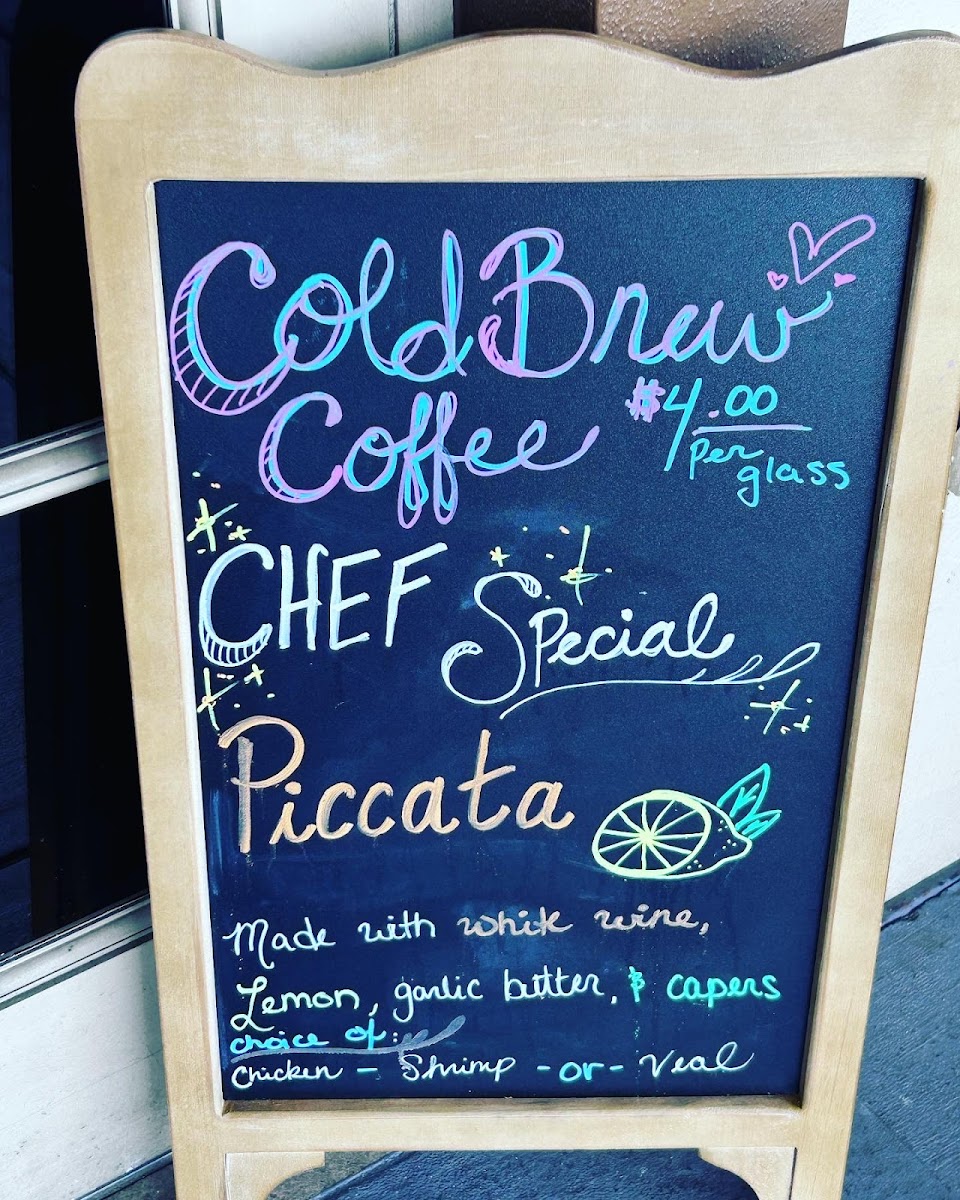 Cold Brew
Coffee $4.00
per
glass
CHEF Special
Piccata
Made with white wine,
Lemon, garlic butter, & capers
choice of:
Chicken - Shrimp - or - Veal